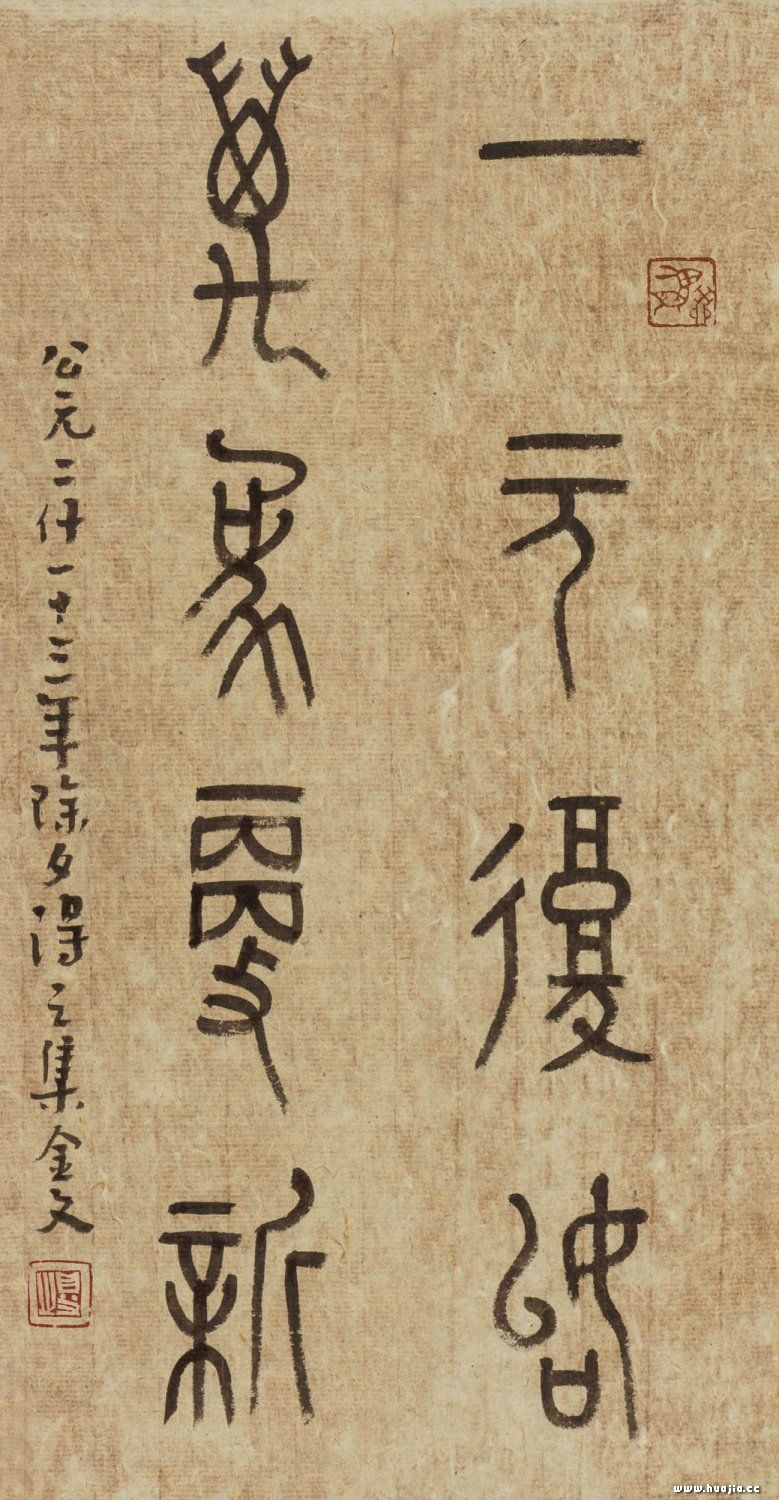 一元復始
萬象更新
公元二仟一十三年除夕得之集金文
www.huajia.cc